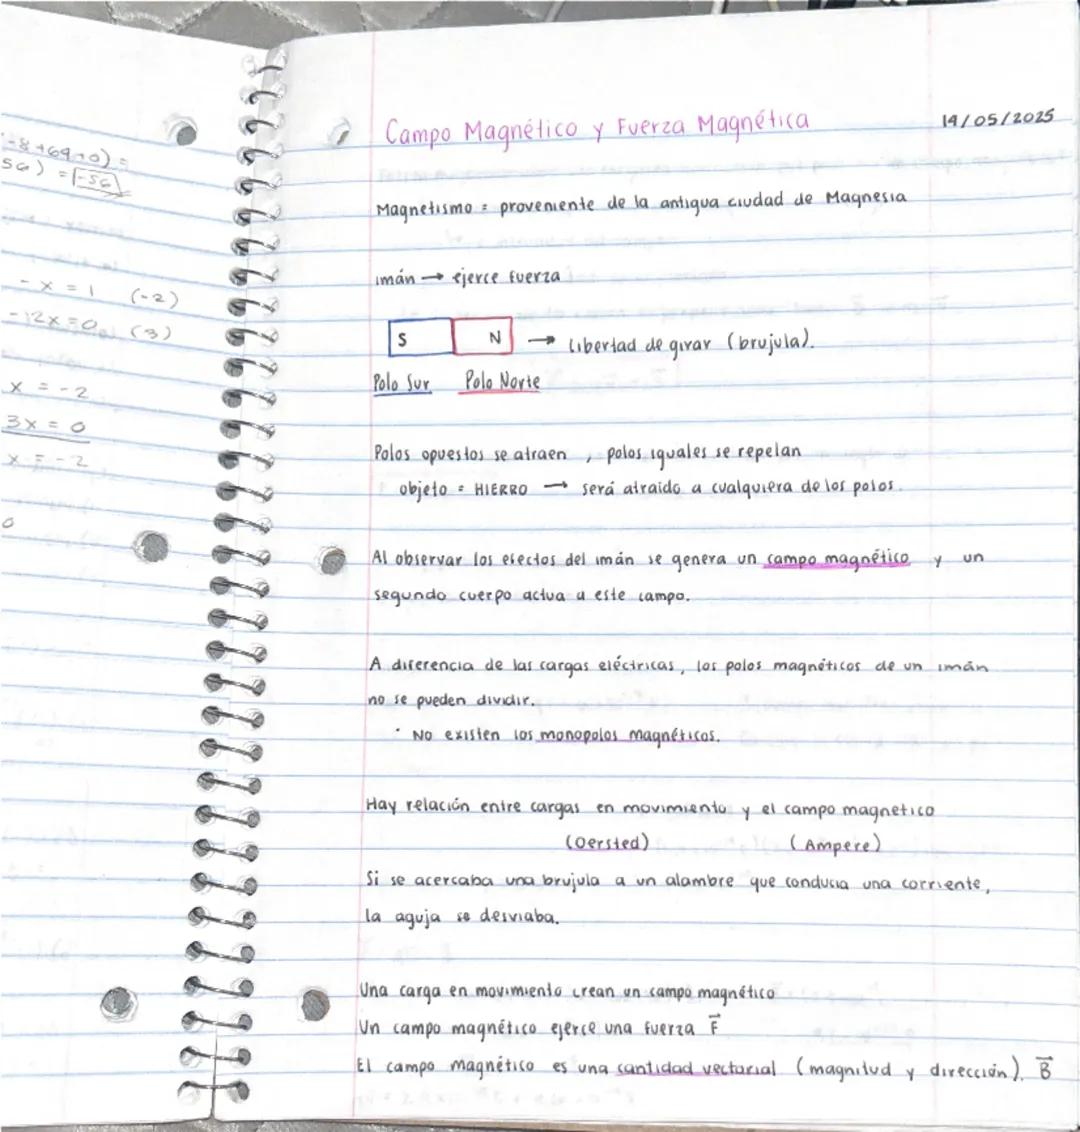 -8+69+0) =
56) = -56
- x = 1 (-2)
-12x = 0 (3)
x = -2
3x = 0
x = -2
0
Campo Magnético y Fuerza Magnética
14/05/2025
Magnetismo = proveniente de la antigua ciudad de Magnesia
imán → ejerce fuerza
S N → libertad de girar (brujula).
Polo Sur Polo Norte
Polos opuestos se atraen , polos iguales se repelan
objeto = HIERRO → será atraido a cualquiera de los polos.
Al observar los efectos del imán se genera un campo magnético y un
segundo cuerpo actua a este campo.
A diferencia de las cargas eléctricas, los polos magnéticos de un imán
no se pueden dividir.
· No existen los monopolos magnéticos.
Hay relación entre cargas en movimiento y el campo magnetico
(Oersted) (Ampere)
Si se acercaba una brujula a un alambre que conducia una corriente,
la aguja se desviaba.
Una carga en movimiento crean un campo magnético
Un campo magnético ejerce una fuerza F⃗
El campo magnético es una cantidad vectorial (magnitud y dirección). B⃗